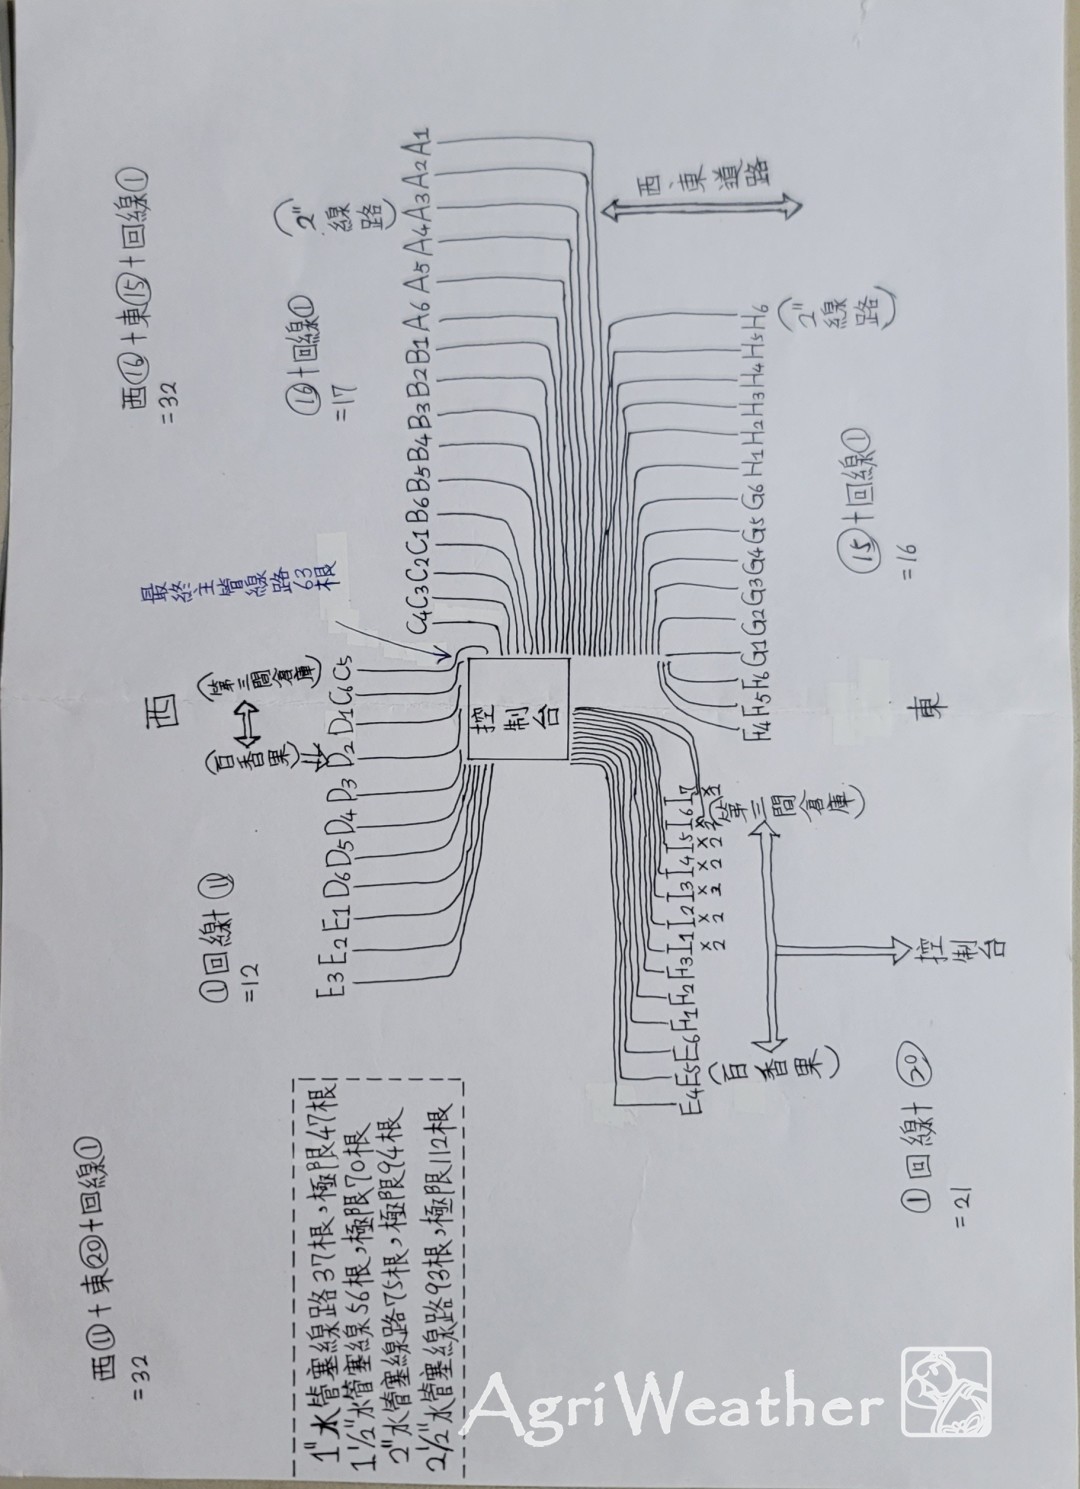 西⑪+東⑳+回線①
=32
西⑯+東⑮+回線①
=32
①回線+⑪
=12
西
⑯+回線①
=17
(2"線路)
(百香果)
(第三間倉庫)
最終主管線路63根
E3 E2 E1 D6 D5 D4 D3 D2 D1 C6 C5
C4 C3 C2 C1 B6 B5 B4 B3 B2 B1 A6 A5 A4 A3 A2 A1
1"水管塞線路37根,極限47根
1½"水管塞線56根,極限70根
2"水管塞線路75根,極限94根
2½"水管塞線路93根,極限112根
控制台
西、東道路
E4 E5 E6 H1 H2 H3 I1 I2 I3 I4 I5 I6 I7
×2 ×2 ×2 ×2 ×2 ×2 ×2
H4 H5 H6 G1 G2 G3 G4 G5 G6 H1 H2 H3 H4 H5 H6
(百香果)
(第三間倉庫)
(2"線路)
控制台
①回線+⑳
=21
東
⑮+回線①
=16
AgriWeather